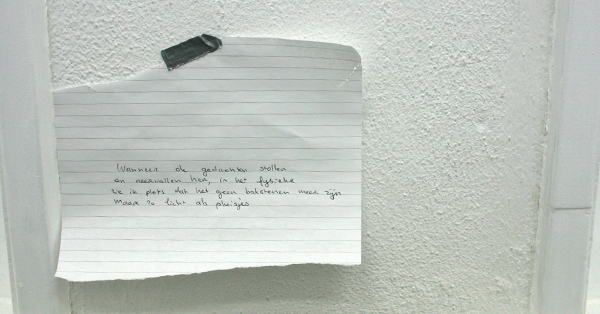 Wanneer de gedachten stollen
en neervallen hier, in het fysieke
zie ik plots dat het geen bakstenen meer zijn
Maar zo licht als pluisjes